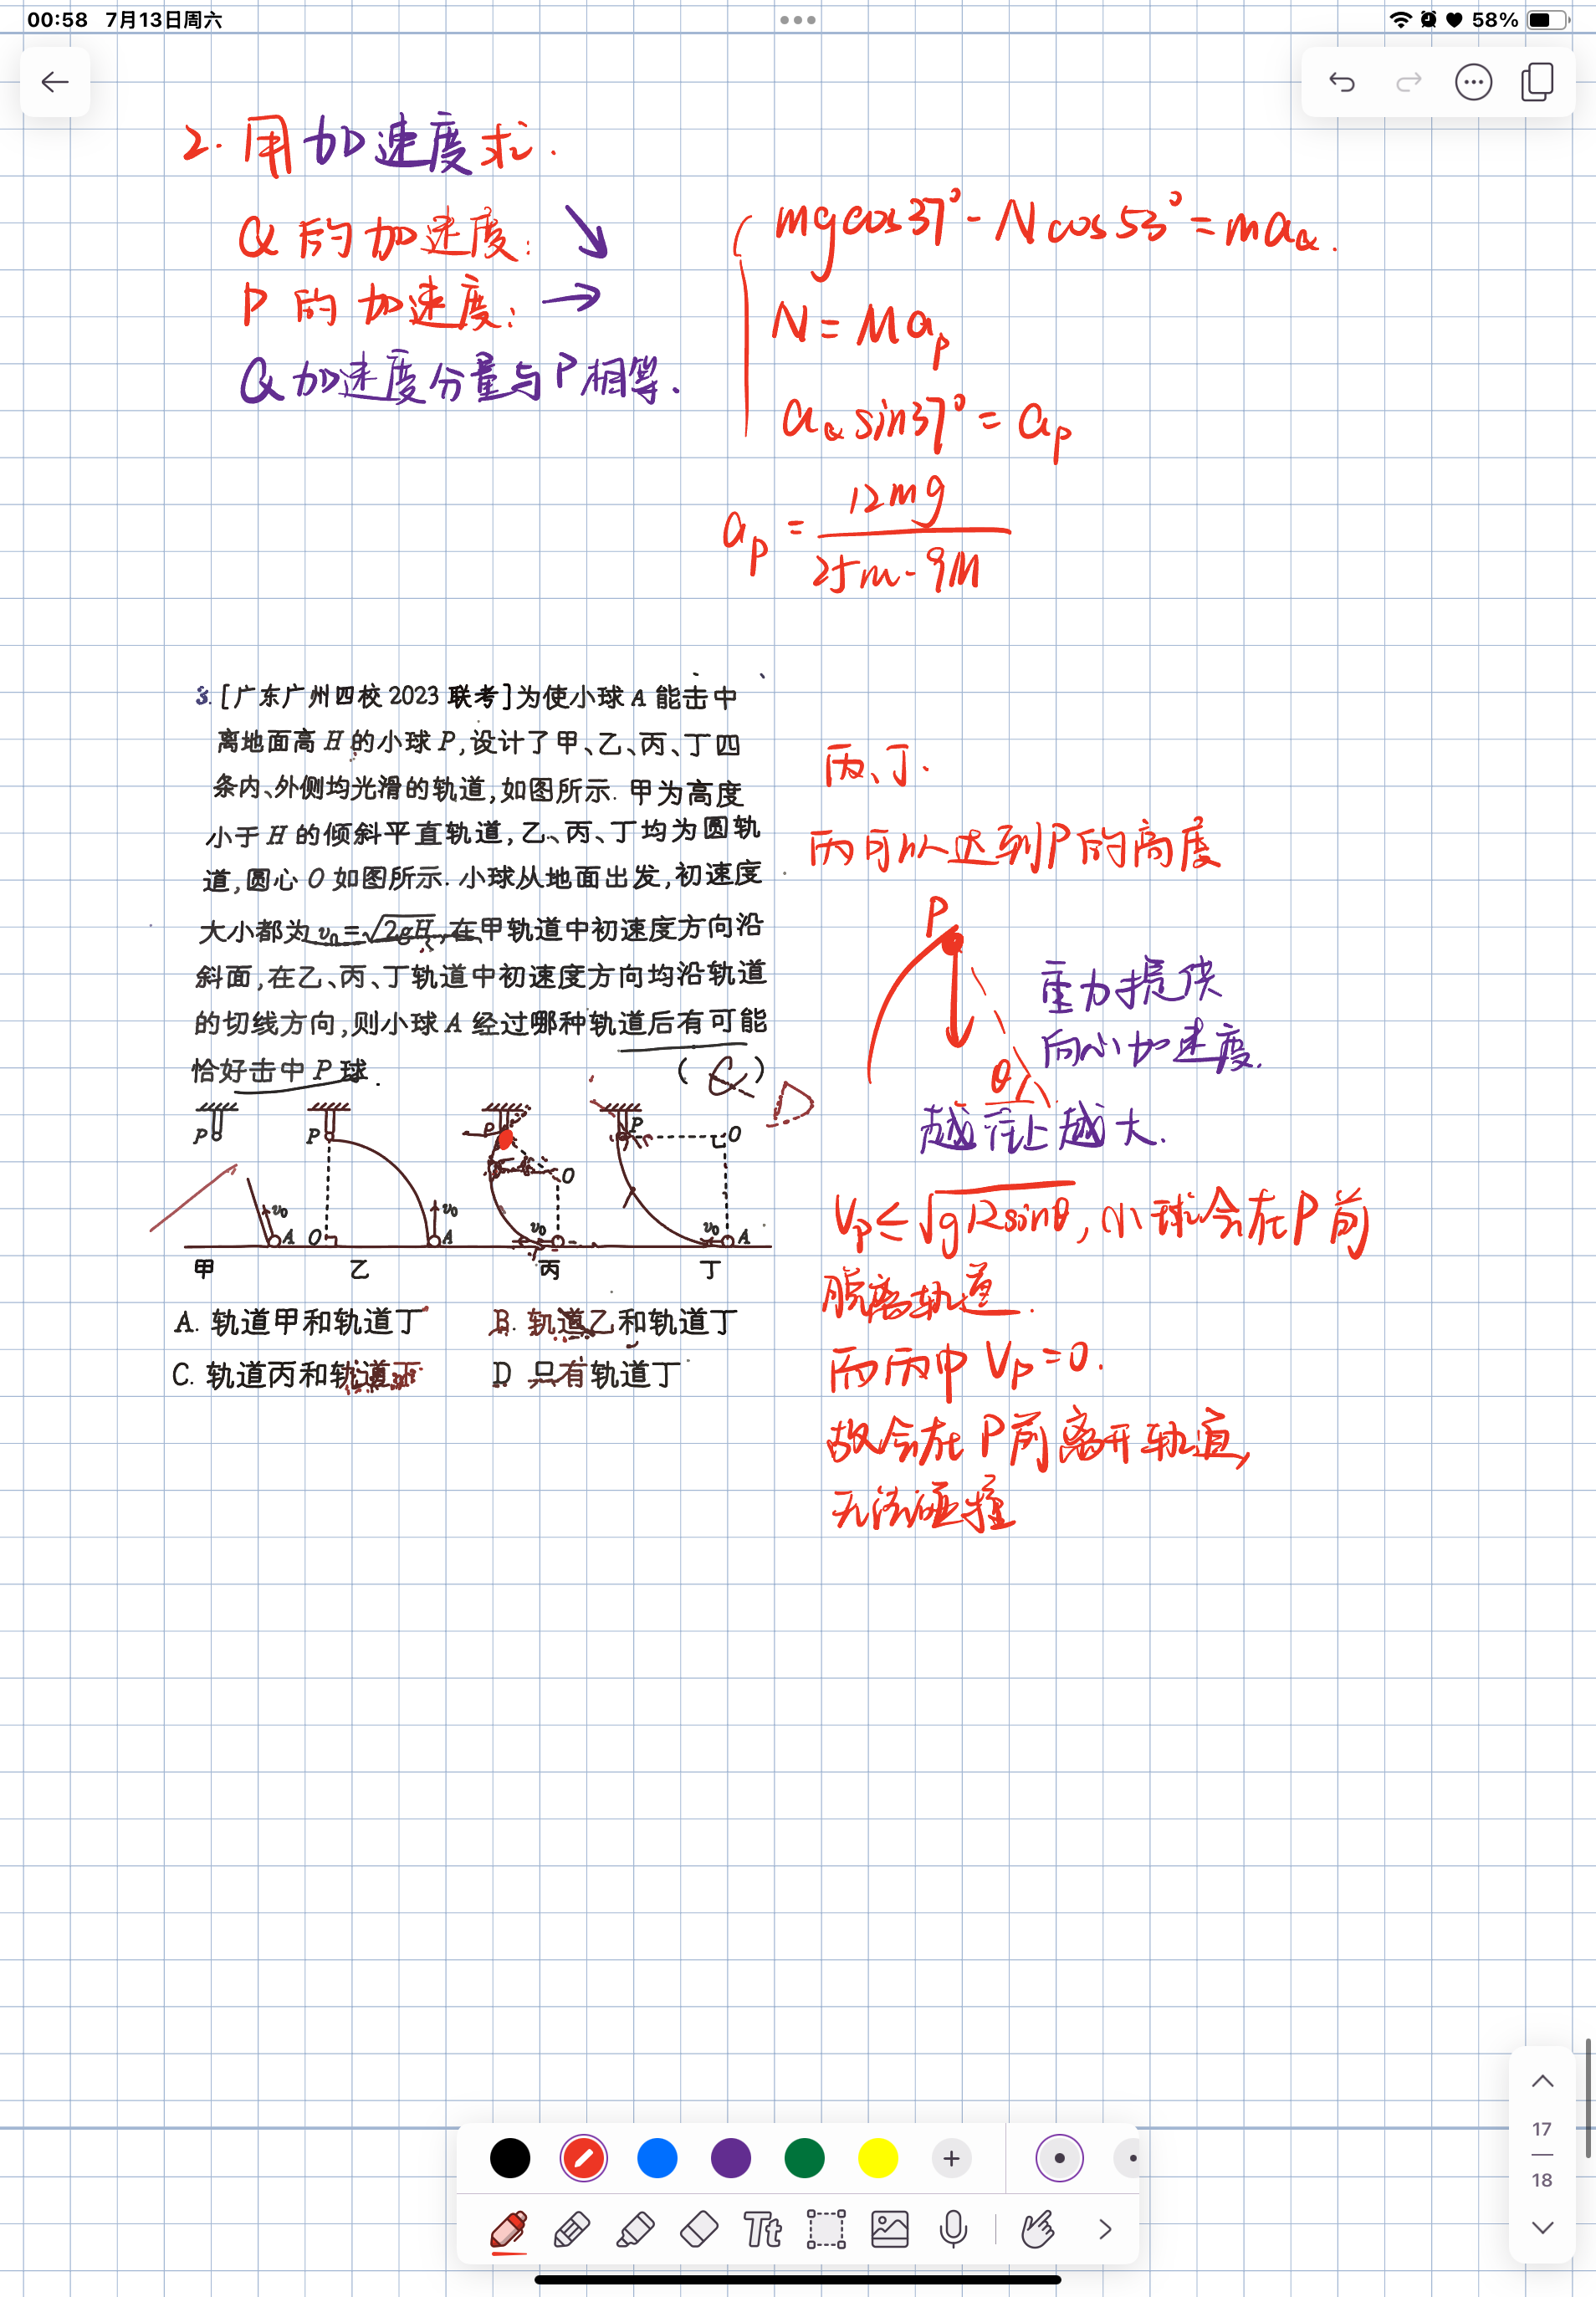 00:58 7月13日周六
58%
2. 用加速度求.
Q 的加速度: ↘
P 的加速度: →
Q 加速度分量与P相等.
mgcos37° - Ncos53° = ma_Q.
N = Ma_P
a_Q sin37° = a_P
a_P = 12mg / 25m-9M
3. [广东广州四校 2023 联考]为使小球 A 能击中
离地面高 H 的小球 P,设计了甲、乙、丙、丁四
条内、外侧均光滑的轨道,如图所示. 甲为高度
小于 H 的倾斜平直轨道,乙、丙、丁均为圆轨
道,圆心 O 如图所示. 小球从地面出发,初速度
大小都为 v₀=√2gH,在甲轨道中初速度方向沿
斜面,在乙、丙、丁轨道中初速度方向均沿轨道
的切线方向,则小球 A 经过哪种轨道后有可能
恰好击中 P 球. ( C ) D
P P P P O
O
v₀ v₀ v₀ v₀
A O A A
甲 乙 丙 丁
A. 轨道甲和轨道丁 B. 轨道乙和轨道丁
C. 轨道丙和轨道丁 D 只有轨道丁
丙、丁.
丙可以达到P的高度
P
重力提供
向心加速度.
θ
越往上越大.
V_P ≤ √gRsinθ, 小球会在P前
脱离轨道.
而丙中 V_P = 0.
故会在P前离开轨道,
无法碰撞
Tt
17
18